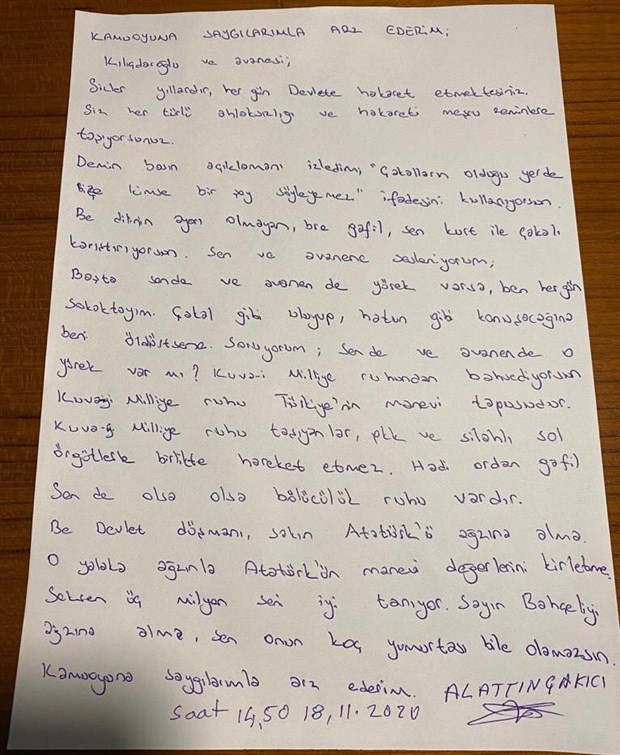 KAMUOYUNA SAYGILARIMLA ARZ EDERİM;
Kılıçdaroğlu ve avanesi;
Sizler yıllardır, her gün Devlete hakaret etmektesiniz.
Siz her türlü ahlaksızlığı ve hakareti meşru zeminlere
taşıyorsunuz.
Demin basın açıklamanı izledim, "Çakalların olduğu yerde
bize kimse bir şey söyleyemez" ifadesini kullanıyorsun.
Be dilinin ayarı olmayan, bre gafil, sen kurt ile çakalı
karıştırıyorsun. Sen ve avanene sesleniyorum;
Başta sende ve avanen de yürek varsa, ben her gün
sokaktayım. Çakal gibi uluyup, hatun gibi konuşacağına
beni öldürtsene. Soruyorum; Sen de ve avanende o
yürek var mı? Kuva-i Milliye ruhundan bahsediyorsun
Kuvayi Milliye ruhu Türkiye'nin manevi tapusudur.
Kuva-yi Milliye ruhu taşıyanlar, pkk ve silahlı sol
örgütlerle birlikte hareket etmez. Hadi ordan gafil
Sen de olsa olsa bölücülük ruhu vardır.
Be Devlet düşmanı, sakın Atatürk'ü ağzına alma.
O yalaka ağzınla Atatürk'ün manevi değerlerini kirletme.
Seksen üç milyon seni iyi tanıyor. Sayın Bahçeliyi
ağzına alma, sen onun koç yumurtası bile olamazsın.
Kamuoyuna saygılarımla arz ederim. ALATTİN ÇAKICI
Saat 14,50 18,11.2020